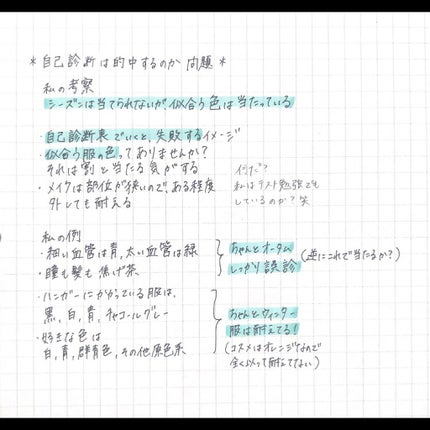 *自己診断は的中するのか問題*
私の考察
シーズンは当てられないが似合う色は当たっている
・自己診断表でいくと、失敗するイメージ
・似合う服の色ってありませんか?
それは割と当たる気がする
・メイクは部位が狭いので、ある程度
外しても耐える
何だ?
私はテスト勉強でも
しているのか?笑
私の例
・細い血管は青、太い血管は緑
・瞳も髪も焦げ茶
ちゃんとオータム
しっかり誤診
(逆にこれで当たるか?)
・ハンガーにかかっている服は、
黒、白、青、チャコールグレー
・好きな色は
白、青、群青色、その他原色系
ちゃんとウィンター
服は耐えてる!
(コスメはオレンジなので
全く以って耐えてない)